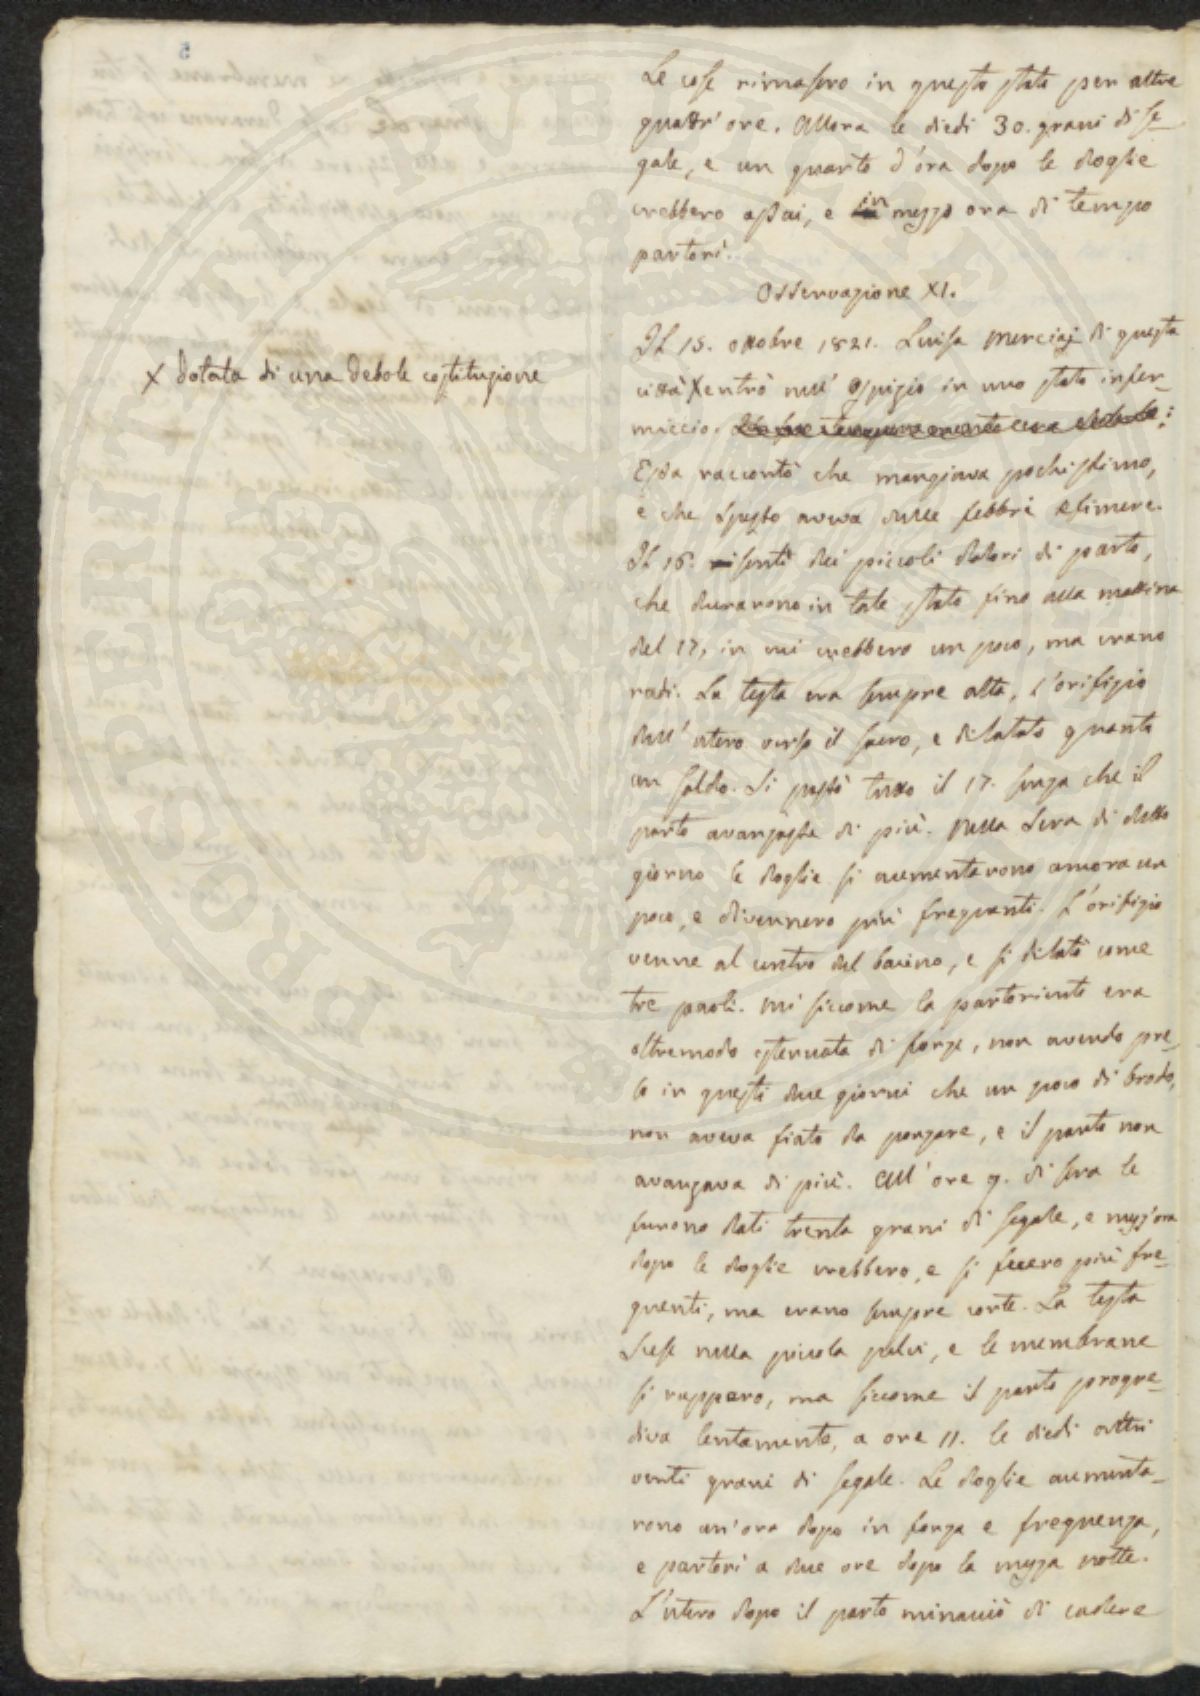 Le cose rimasero in questo stato per altre
quattr'ore. Allora le diedi 30. grani di se-
gale, e un quarto d'ora dopo le doglie
crebbero assai, e in mezzo ora di tempo
partorì.
Osservazione XI.
Il 15. ottobre 1821. Luisa Merciaj di questa
città X entrò nell'Ospizio in uno stato infer-
X dotata di una debole costituzione
miccio.
Essa raccontò che mangiava pochissimo,
e che spesso aveva delle febbri efimere.
Il 16. risentì dei piccoli dolori di parto,
che durarono in tale stato fino alla mattina
del 17, in cui crebbero un poco, ma erano
radi. La testa era sempre alta, l'orifizio
dell'utero verso il sacro, e dilatato quanto
un soldo. Si passò tutto il 17. senza che il
parto avanzasse di più. Nella sera di detto
giorno le doglie si aumentarono ancora un
poco, e divennero più frequenti. L'orifizio
venne al centro del bacino, e si dilatò come
tre paoli. Mi siccome la partoriente era
oltremodo estenuata di forze, non avendo pre-
so in questi due giorni che un poco di brodo,
non aveva fiato da ponzare, e il parto non
avanzava di più. All'ore 9. di sera le
furono dati trenta grani di segale, e mezz'ora
dopo le doglie crebbero, e si fecero più fre-
quenti, ma erano sempre corte. La testa
scese nella piccola pelvi, e le membrane
si ruppero, ma siccome il parto progre-
diva lentamente, a ore 11. le diedi altri
venti grani di segale. Le doglie aumenta-
rono un'ora dopo in forza e frequenza,
e partorì a due ore dopo la mezza notte.
L'utero dopo il parto minacciò di cadere
PROSPERITATI PUBLICAE